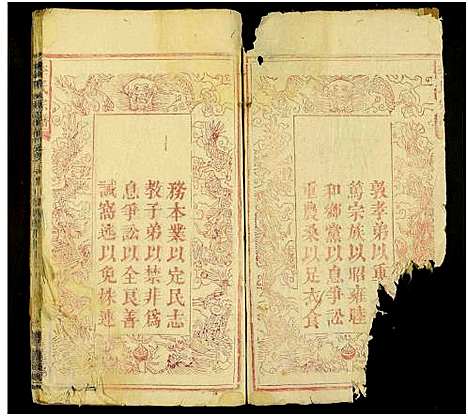 敦孝弟以重
萬宗族以昭雍睦
和鄉黨以息爭訟
重農桑以足衣食
務本業以定民志
教子弟以禁非為
息爭訟以全良善
誡窩逃以免株連